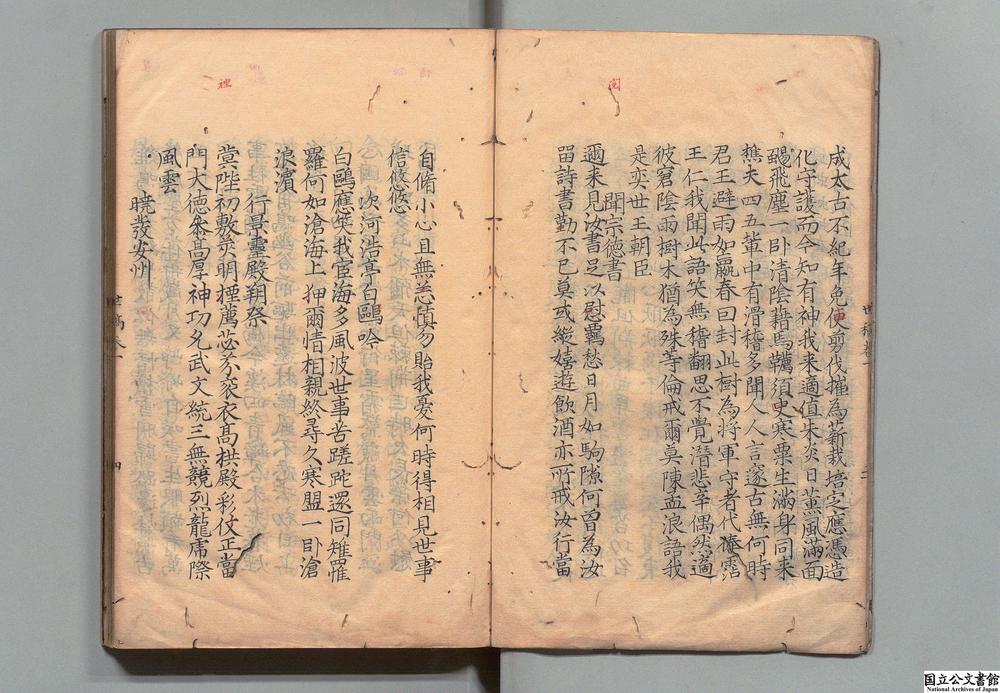 成太古不紀年免使翦伐摧為薪栽培定應憑造
化守護而今知有神我來適值朱炎日薰風滿面
颺飛塵一卧清陰藉馬韉須臾寒粟生滿身同來
樵夫四五輩中有滑稽多聞人人言邃古無何時
君王避雨如嬴春回封此樹為將軍守者代僚霑
王仁我聞此語笑無稽翻思不覺潛悲辛偶然適
彼窘陰雨樹木猶為殊等倫戒爾莫陳孟浪語我
是奕世王朝臣
聞宗德書
邇來見汝書足以慰羈愁日月如駒隙何曾為汝
留詩書勤不已莫或縱嬉遊飲酒亦所戒汝行當
自脩小心且無恙慎勿貽我憂何時得相見世事
信悠悠
次河浩亭白鷗吟
白鷗應笑我宦海多風波世事苦蹉跎還同雉罹
羅何如滄海上狎爾情相親終尋久寒盟一卧滄
浪濱
行景靈殿朔祭
蓂陛初敷莢明禋薦苾芬袞衣高拱殿彩仗正當
門大德叅高厚神功允武文統三無競烈龍虎際
風雲
曉發安州
国立公文書館
National Archives of Japan